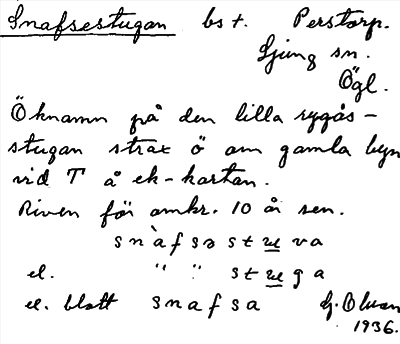 Snafsestugan bst. Perstorp.
Ljung sn.
Ögl.
Öknamn på den lilla ryggås-
stugan strax ö om gamla byn
vid T å ek-kartan.
Riven för omkr. 10 år sen.
snàfsəstuva
el. " " stuga
el. blott snafsa
1936.